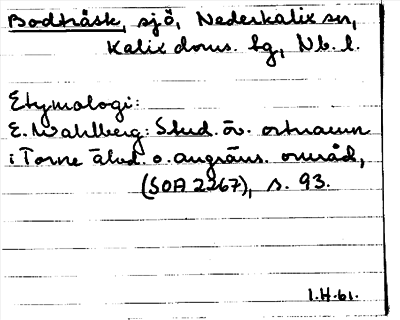 Bodträsk, sjö, Nederkalix sn,
Kalix doms. bg, Nb. l.
Etymologi:
E. Wahlberg: Stud. öv. ortnamn
i Torne älvd. o. angräns. område,
(SOA 2267), s. 93.
1.H.61.